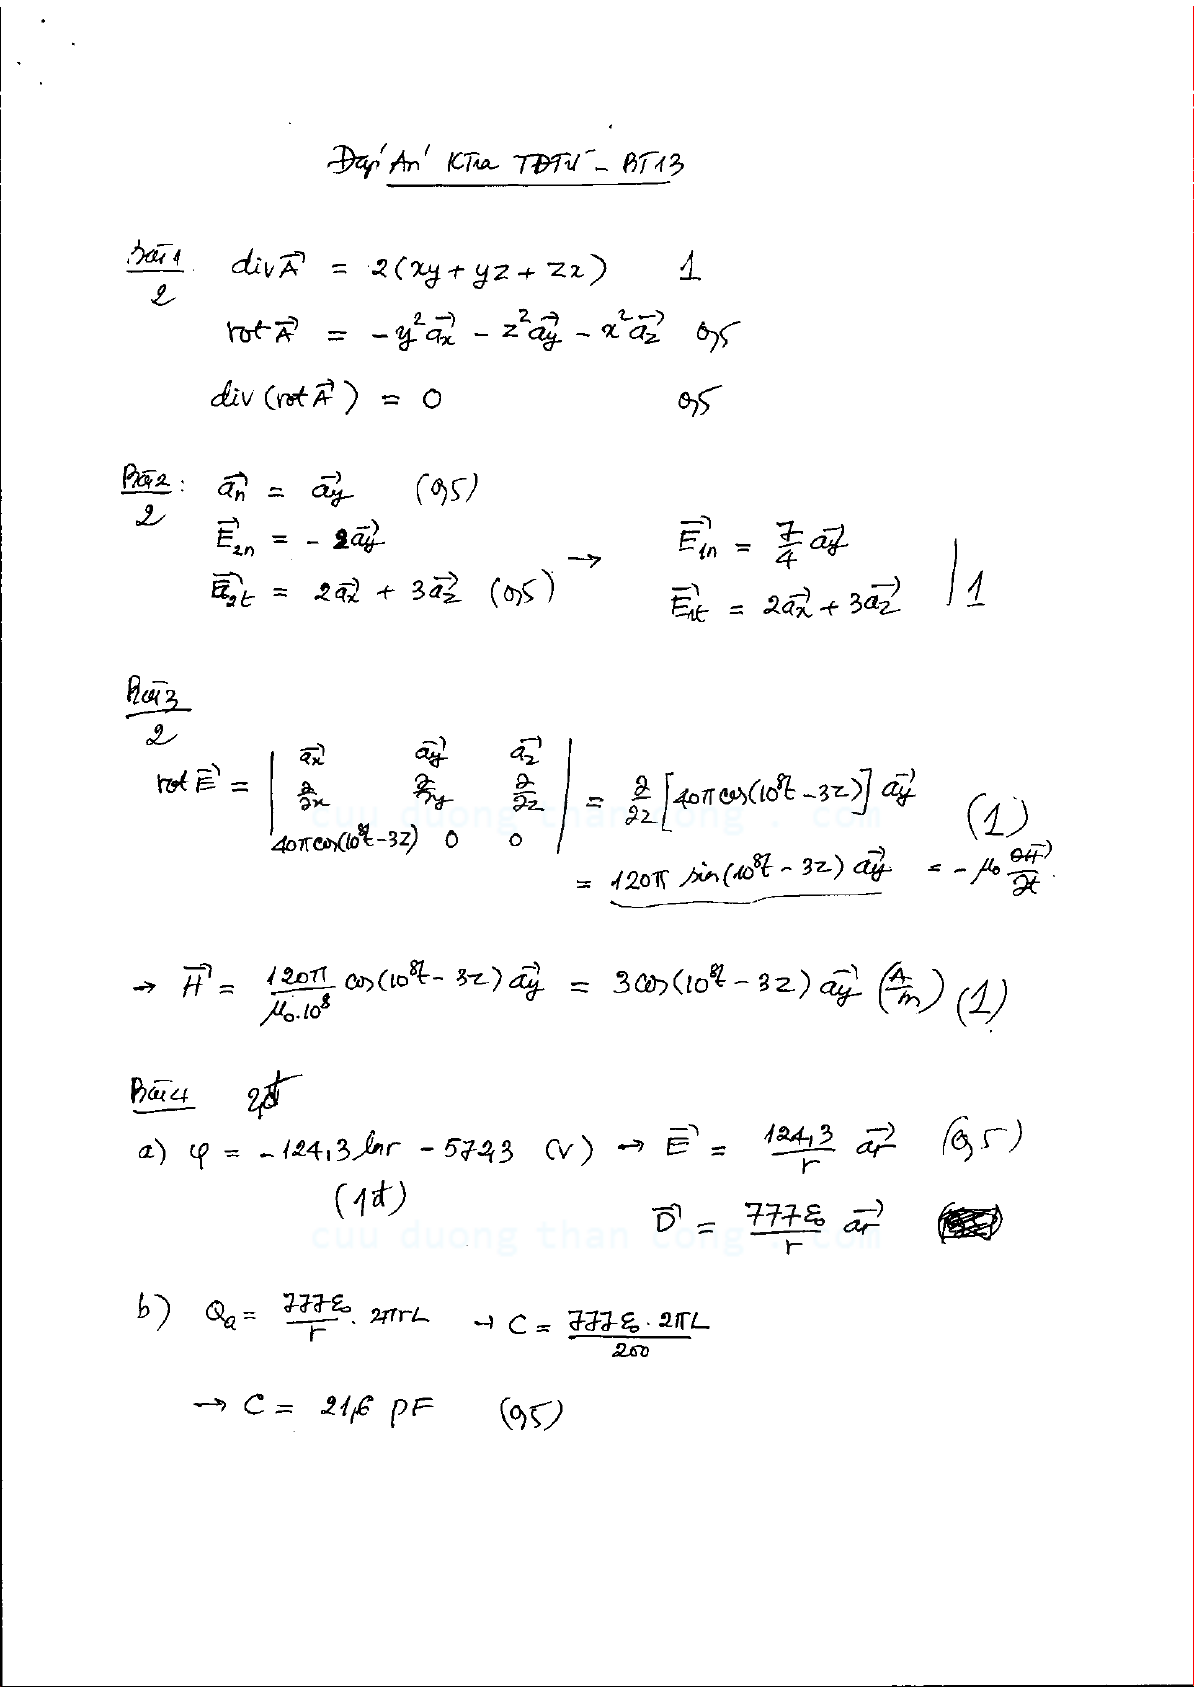 Đáp Án KTra TĐTừ - BT13
Bài 1 / 2 div A⃗ = 2(xy + yz + zx) 1
rot A⃗ = - y² a⃗x - z² a⃗y - x² a⃗z 0,5
div (rot A⃗) = 0 0,5
Bài 2 / 2 : a⃗n = a⃗y (0,5)
E⃗2n = - 2a⃗y → E⃗1n = 7/4 a⃗y
E⃗2t = 2a⃗x + 3a⃗z (0,5) E⃗1t = 2a⃗x + 3a⃗z | 1
Bài 3 / 2
rot E⃗ = | a⃗x a⃗y a⃗z |
| ∂/∂x ∂/∂y ∂/∂z | = ∂/∂z [40π cos(10⁸t - 3z)] a⃗y (1)
| 40π cos(10⁸t - 3z) 0 0 |
= 120π sin(10⁸t - 3z) a⃗y = - μ₀ ∂H⃗/∂t
→ H⃗ = 120π/(μ₀.10⁸) cos(10⁸t - 3z) a⃗y = 3cos(10⁸t - 3z) a⃗y (A/m) (1)
Bài 4 2đ
a) φ = - 124,3 ln r - 572,3 (V) → E⃗ = 124,3/r a⃗r (0,5)
(1đ) D⃗ = 777ε₀/r a⃗r
b) Qa = 777ε₀/r . 2πrL → C = 777ε₀ . 2πL/200
→ C = 21,6 pF (0,5)
cuu duong than cong . com
cuu duong than cong . com